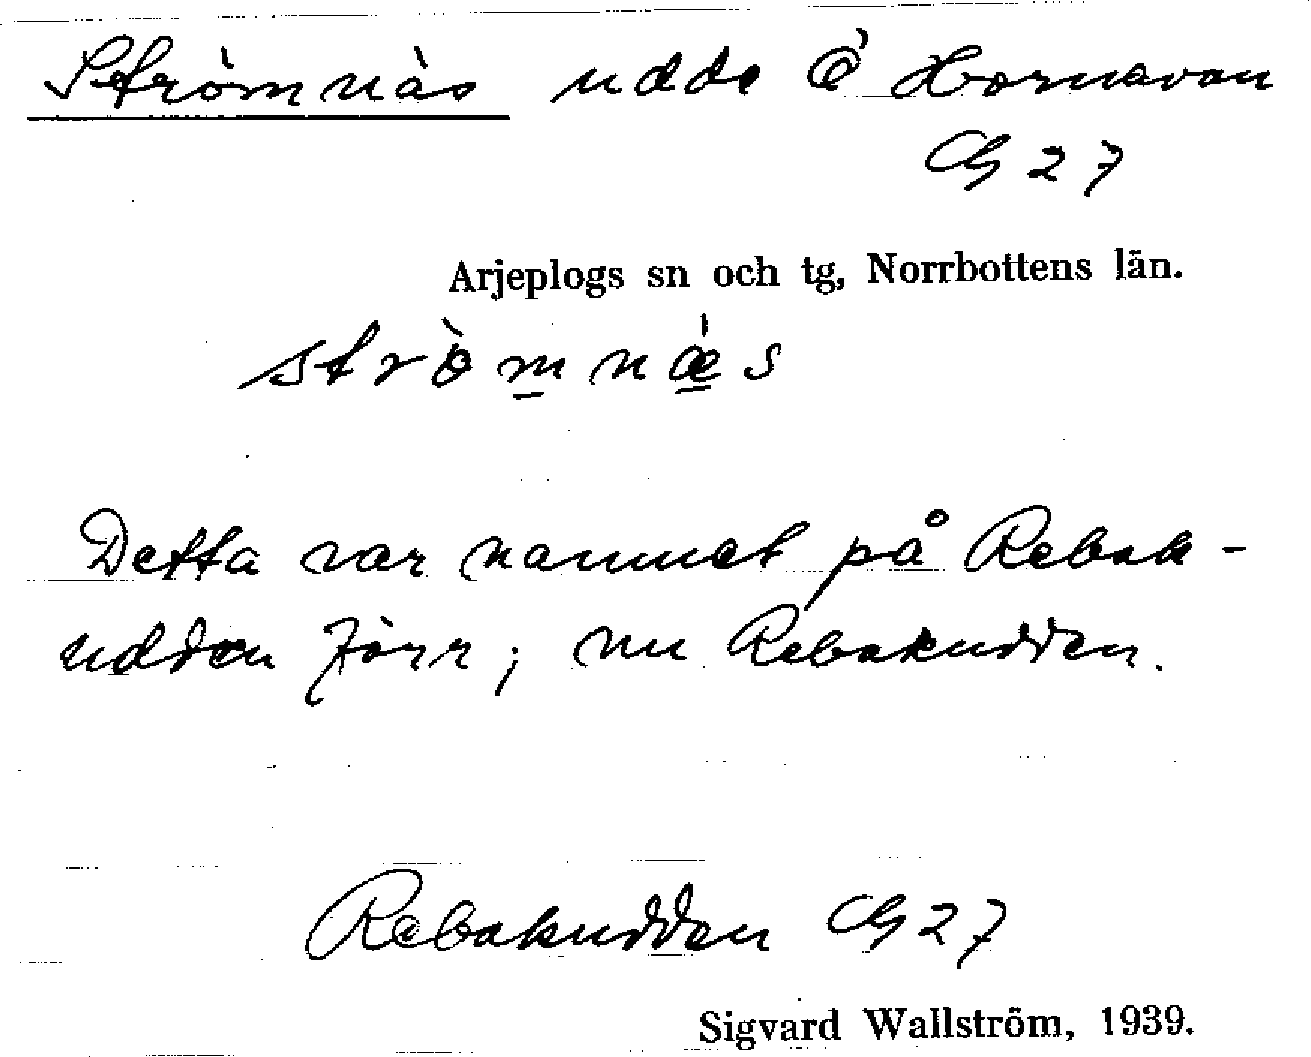 Strömnäs udde i Hornavan
G 27
Arjeplogs sn och tg, Norrbottens län.
strò̀mnǽs
Detta var namnet på Rebak-
udden förr; nu Rebakudden.
Rebakudden G 27
Sigvard Wallström, 1939.